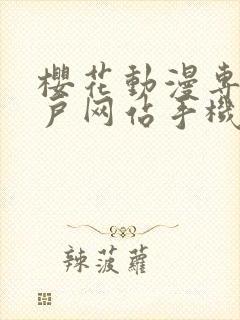 櫻花動漫專
戶网佔手機
辣菠蘿